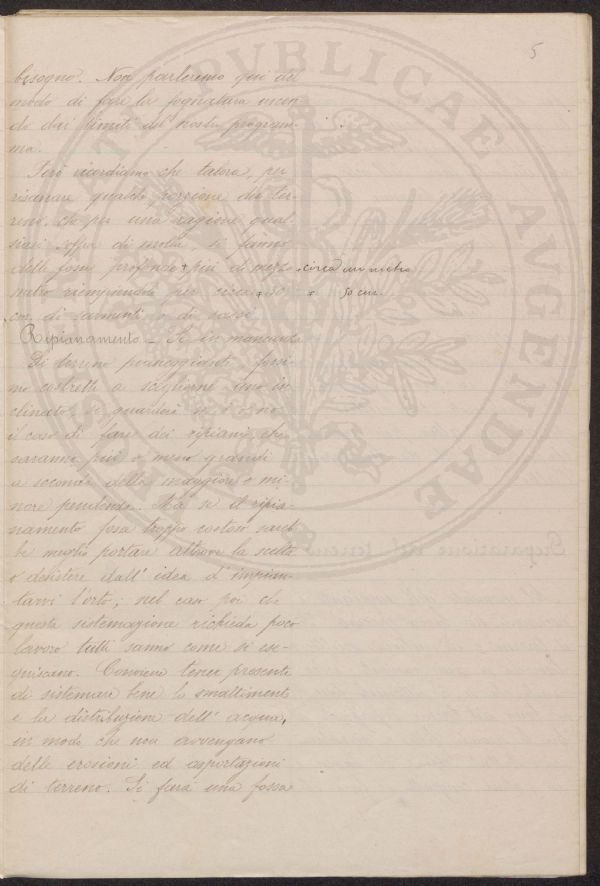 5
bisogno. Non parleremo qui del
modo di fare la fognatura uscen-
do dai limiti del nostro program-
ma.
Però ricordiamo che talora, per
risanare qualche porzione di ter-
reno, che per una ragione qual
siasi soffre di molta, si fanno
delle fosse profonde + più di mez + circa un metro
riempiendole per circa + 50 + 50 cm.
cm. di sarmenti o di sassi.
Ripianamento - Se in mancanza
di terreno pianeggiante, fossi-
mo costretti a sceglierne uno in
clinato, si guarderà se è o no
il caso di fare dei ripiani, che
saranno più o meno grandi
a seconda della maggiore o mi-
nore pendenza. Ma se il ripia-
namento fosse troppo costoso sareb
be meglio portare altrove la scelta
o desistere dall'idea d'impian-
tarvi l'orto; nel caso poi che
questa sistemazione richieda poco
lavoro tutti sanno come si ese-
guiscano. Conviene tener presente
di sistemare bene lo smaltimento
e la distribuzione dell'acqua,
in modo che non avvengano
delle erosioni ed asportazioni
di terreno. Si farà una fossa
PVBLICAE AVGENDAE